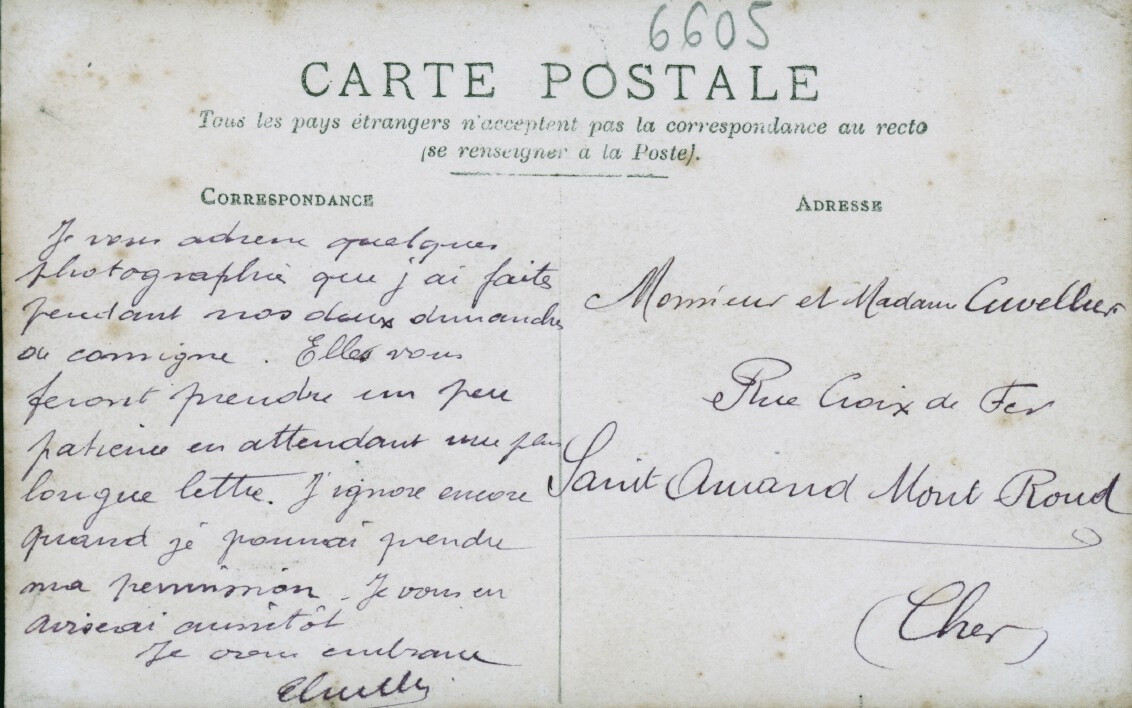 6605
CARTE POSTALE
Tous les pays étrangers n'acceptent pas la correspondance au recto
(se renseigner à la Poste).
CORRESPONDANCE
ADRESSE
Je vous adresse quelques
photographies que j'ai faites
pendant nos deux dimanches
de consigne. Elles vous
feront prendre un peu
patience en attendant une
longue lettre. J'ignore encore
quand je pourrai prendre
ma permission. Je vous en
aviserai aussitôt
Je vous embrasse
Monsieur et Madame Cuvellier
Rue Croix de Fer
Saint Amand Mont Rond
(Cher)